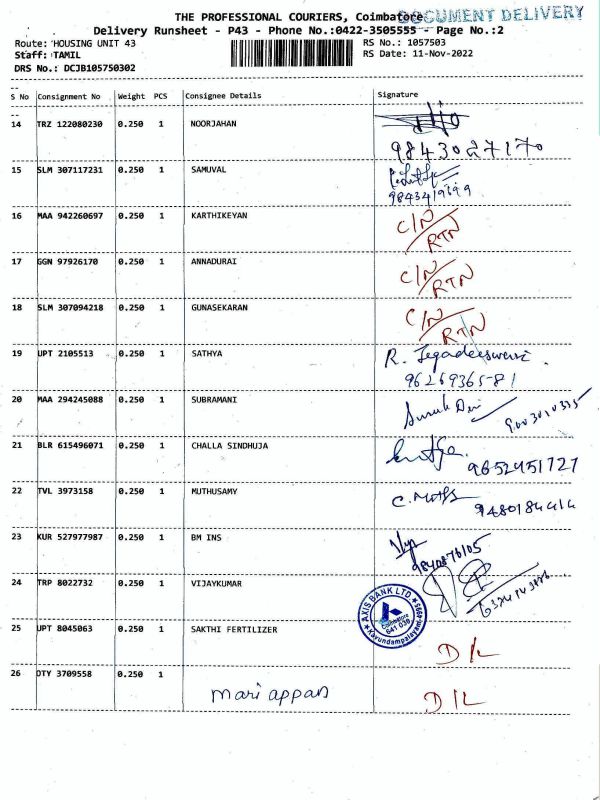 THE PROFESSIONAL COURIERS, Coimbatore
DOCUMENT DELIVERY
Delivery Runsheet - P43 - Phone No.:0422-3505555 - Page No.:2
Route: HOUSING UNIT 43 RS No.: 1057503
Staff: TAMIL RS Date: 11-Nov-2022
DRS No.: DCJB105750302
S No Consignment No Weight PCS Consignee Details Signature
14 TRZ 122080230 0.250 1 NOORJAHAN
9843027170
15 SLM 307117231 0.250 1 SAMUVAL
16 MAA 942260697 0.250 1 KARTHIKEYAN C/N
RTN
17 GGN 97926170 0.250 1 ANNADURAI C/N
RTN
18 SLM 307094218 0.250 1 GUNASEKARAN C/N
RTN
19 UPT 2105513 0.250 1 SATHYA R. Jegadeeswari.
9626936581
20 MAA 294245088 0.250 1 SUBRAMANI
21 BLR 615496071 0.250 1 CHALLA SINDHUJA
9652951727
22 TVL 3973158 0.250 1 MUTHUSAMY
23 KUR 527977987 0.250 1 BM INS
9840876105
24 TRP 8022732 0.250 1 VIJAYKUMAR
AXIS BANK LTD.
Coimbatore
641 030
25 UPT 8045063 0.250 1 SAKTHI FERTILIZER D/L
26 OTY 3709558 0.250 1 mariappan D/L